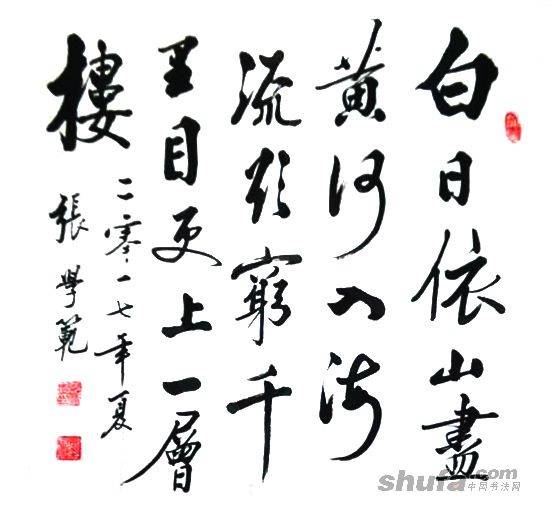 白日依山盡
黃河入海
流欲窮千
里目更上一層
樓
二零一七年夏
張學範
shufa.com
中国书法网